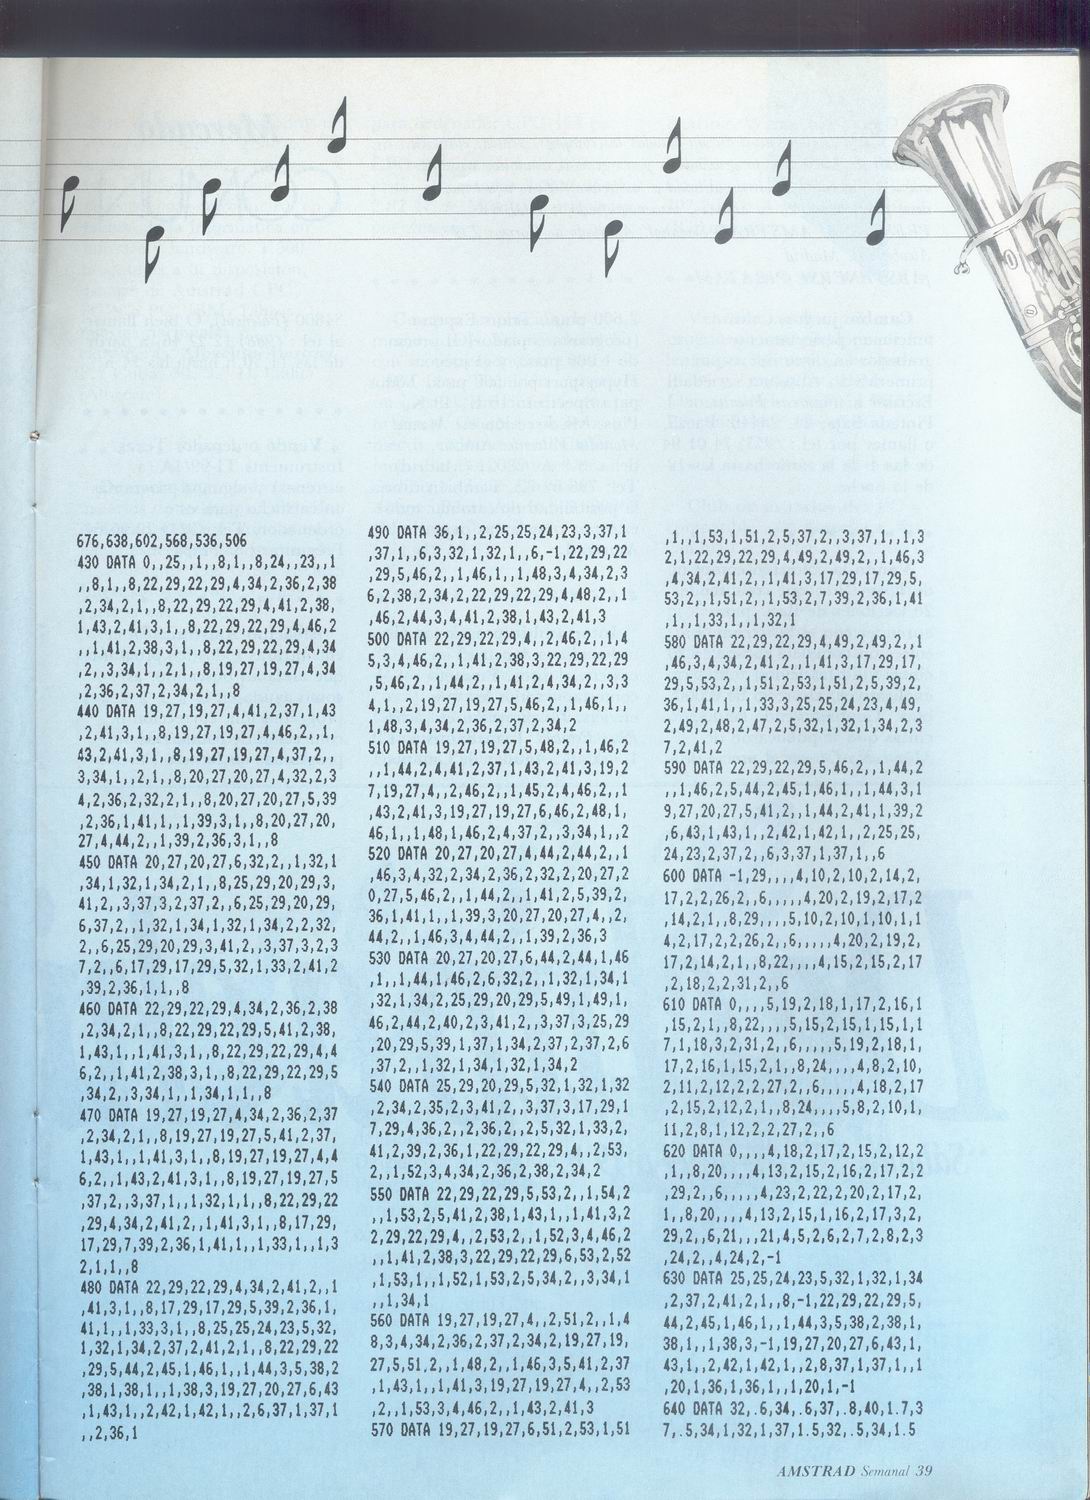 676,638,602,568,536,506
430 DATA 0,,25,,1,,8,1,,8,24,,23,,1
,,8,1,,8,22,29,22,29,4,34,2,36,2,38
,2,34,2,1,,8,22,29,22,29,4,41,2,38,
1,43,2,41,3,1,,8,22,29,22,29,4,46,2
,,1,41,2,38,3,1,,8,22,29,22,29,4,34
,2,,3,34,1,,2,1,,8,19,27,19,27,4,34
,2,36,2,37,2,34,2,1,,8
440 DATA 19,27,19,27,4,41,2,37,1,43
,2,41,3,1,,8,19,27,19,27,4,46,2,,1,
43,2,41,3,1,,8,19,27,19,27,4,37,2,,
3,34,1,,2,1,,8,20,27,20,27,4,32,2,3
4,2,36,2,32,2,1,,8,20,27,20,27,5,39
,2,36,1,41,1,,1,39,3,1,,8,20,27,20,
27,4,44,2,,1,39,2,36,3,1,,8
450 DATA 20,27,20,27,6,32,2,,1,32,1
,34,1,32,1,34,2,1,,8,25,29,20,29,3,
41,2,,3,37,3,2,37,2,,6,25,29,20,29,
6,37,2,,1,32,1,34,1,32,1,34,2,2,32,
2,,6,25,29,20,29,3,41,2,,3,37,3,2,3
7,2,,6,17,29,17,29,5,32,1,33,2,41,2
,39,2,36,1,1,,8
460 DATA 22,29,22,29,4,34,2,36,2,38
,2,34,2,1,,8,22,29,22,29,5,41,2,38,
1,43,1,,1,41,3,1,,8,22,29,22,29,4,4
6,2,,1,41,2,38,3,1,,8,22,29,22,29,5
,34,2,,3,34,1,,1,34,1,1,,8
470 DATA 19,27,19,27,4,34,2,36,2,37
,2,34,2,1,,8,19,27,19,27,5,41,2,37,
1,43,1,,1,41,3,1,,8,19,27,19,27,4,4
6,2,,1,43,2,41,3,1,,8,19,27,19,27,5
,37,2,,3,37,1,,1,32,1,1,,8,22,29,22
,29,4,34,2,41,2,,1,41,3,1,,8,17,29,
17,29,7,39,2,36,1,41,1,,1,33,1,,1,3
2,1,1,,8
480 DATA 22,29,22,29,4,34,2,41,2,,1
,41,3,1,,8,17,29,17,29,5,39,2,36,1,
41,1,,1,33,3,1,,8,25,25,24,23,5,32,
1,32,1,34,2,37,2,41,2,1,,8,22,29,22
,29,5,44,2,45,1,46,1,,1,44,3,5,38,2
,38,1,38,1,,1,38,3,19,27,20,27,6,43
,1,43,1,,2,42,1,42,1,,2,6,37,1,37,1
,,2,36,1
490 DATA 36,1,,2,25,25,24,23,3,37,1
,37,1,,6,3,32,1,32,1,,6,-1,22,29,22
,29,5,46,2,,1,46,1,,1,48,3,4,34,2,3
6,2,38,2,34,2,22,29,22,29,4,48,2,,1
,46,2,44,3,4,41,2,38,1,43,2,41,3
500 DATA 22,29,22,29,4,,2,46,2,,1,4
5,3,4,46,2,,1,41,2,38,3,22,29,22,29
,5,46,2,,1,44,2,,1,41,2,4,34,2,,3,3
4,1,,2,19,27,19,27,5,46,2,,1,46,1,,
1,48,3,4,34,2,36,2,37,2,34,2
510 DATA 19,27,19,27,5,48,2,,1,46,2
,,1,44,2,4,41,2,37,1,43,2,41,3,19,2
7,19,27,4,,2,46,2,,1,45,2,4,46,2,,1
,43,2,41,3,19,27,19,27,6,46,2,48,1,
46,1,,1,48,1,46,2,4,37,2,,3,34,1,,2
520 DATA 20,27,20,27,4,44,2,44,2,,1
,46,3,4,32,2,34,2,36,2,32,2,20,27,2
0,27,5,46,2,,1,44,2,,1,41,2,5,39,2,
36,1,41,1,,1,39,3,20,27,20,27,4,,2,
44,2,,1,46,3,4,44,2,,1,39,2,36,3
530 DATA 20,27,20,27,6,44,2,44,1,46
,1,,1,44,1,46,2,6,32,2,,1,32,1,34,1
,32,1,34,2,25,29,20,29,5,49,1,49,1,
46,2,44,2,40,2,3,41,2,,3,37,3,25,29
,20,29,5,39,1,37,1,34,2,37,2,37,2,6
,37,2,,1,32,1,34,1,32,1,34,2
540 DATA 25,29,20,29,5,32,1,32,1,32
,2,34,2,35,2,3,41,2,,3,37,3,17,29,1
7,29,4,36,2,,2,36,2,,2,5,32,1,33,2,
41,2,39,2,36,1,22,29,22,29,4,,2,53,
2,,1,52,3,4,34,2,36,2,38,2,34,2
550 DATA 22,29,22,29,5,53,2,,1,54,2
,,1,53,2,5,41,2,38,1,43,1,,1,41,3,2
2,29,22,29,4,,2,53,2,,1,52,3,4,46,2
,,1,41,2,38,3,22,29,22,29,6,53,2,52
,1,53,1,,1,52,1,53,2,5,34,2,,3,34,1
,,1,34,1
560 DATA 19,27,19,27,4,,2,51,2,,1,4
8,3,4,34,2,36,2,37,2,34,2,19,27,19,
27,5,51,2,,1,48,2,,1,46,3,5,41,2,37
,1,43,1,,1,41,3,19,27,19,27,4,,2,53
,2,,1,53,3,4,46,2,,1,43,2,41,3
570 DATA 19,27,19,27,6,51,2,53,1,51
,1,,1,53,1,51,2,5,37,2,,3,37,1,,1,3
2,1,22,29,22,29,4,49,2,49,2,,1,46,3
,4,34,2,41,2,,1,41,3,17,29,17,29,5,
53,2,,1,51,2,,1,53,2,7,39,2,36,1,41
,1,,1,33,1,,1,32,1
580 DATA 22,29,22,29,4,49,2,49,2,,1
,46,3,4,34,2,41,2,,1,41,3,17,29,17,
29,5,53,2,,1,51,2,53,1,51,2,5,39,2,
36,1,41,1,,1,33,3,25,25,24,23,4,49,
2,49,2,48,2,47,2,5,32,1,32,1,34,2,3
7,2,41,2
590 DATA 22,29,22,29,5,46,2,,1,44,2
,,1,46,2,5,44,2,45,1,46,1,,1,44,3,1
9,27,20,27,5,41,2,,1,44,2,41,1,39,2
,6,43,1,43,1,,2,42,1,42,1,,2,25,25,
24,23,2,37,2,,6,3,37,1,37,1,,6
600 DATA -1,29,,,,4,10,2,10,2,14,2,
17,2,2,26,2,,6,,,,,4,20,2,19,2,17,2
,14,2,1,,8,29,,,,5,10,2,10,1,10,1,1
4,2,17,2,2,26,2,,6,,,,,4,20,2,19,2,
17,2,14,2,1,,8,22,,,,4,15,2,15,2,17
,2,18,2,2,31,2,,6
610 DATA 0,,,,5,19,2,18,1,17,2,16,1
,15,2,1,,8,22,,,,5,15,2,15,1,15,1,1
7,1,18,3,2,31,2,,6,,,,,5,19,2,18,1,
17,2,16,1,15,2,1,,8,24,,,,4,8,2,10,
2,11,2,12,2,2,27,2,,6,,,,,4,18,2,17
,2,15,2,12,2,1,,8,24,,,,5,8,2,10,1,
11,2,8,1,12,2,2,27,2,,6
620 DATA 0,,,,4,18,2,17,2,15,2,12,2
1,,8,20,,,,4,13,2,15,2,16,2,17,2,2
,29,2,,6,,,,,4,23,2,22,2,20,2,17,2,
1,,8,20,,,,4,13,2,15,1,16,2,17,3,2,
29,2,,6,21,,,,21,4,5,2,6,2,7,2,8,2,3
,24,2,,4,24,2,-1
630 DATA 25,25,24,23,5,32,1,32,1,34
,2,37,2,41,2,1,,8,-1,22,29,22,29,5,
44,2,45,1,46,1,,1,44,3,5,38,2,38,1,
38,1,,1,38,3,-1,19,27,20,27,6,43,1,
43,1,,2,42,1,42,1,,2,8,37,1,37,1,,1
,20,1,36,1,36,1,,1,20,1,-1
640 DATA 32,.6,34,.6,37,.8,40,1.7,3
7,.5,34,1,32,1,37,1.5,32,.5,34,1.5
AMSTRAD Semanal 39